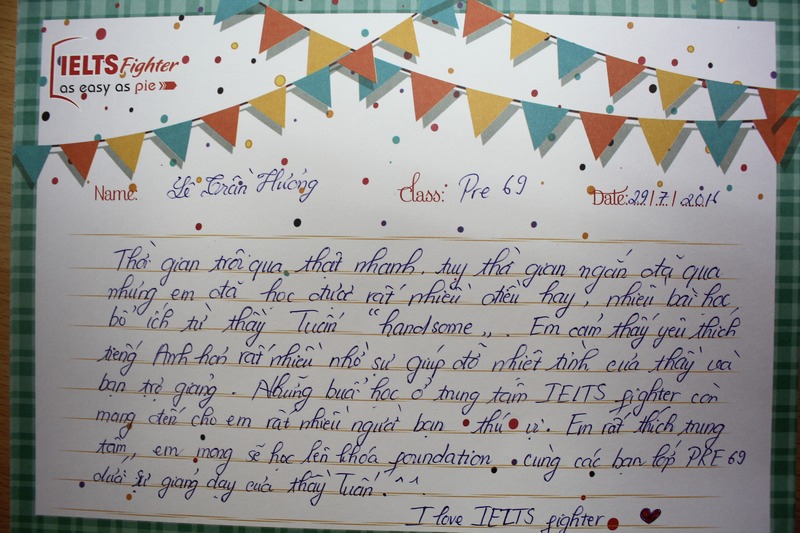 IELTS Fighter
as easy as pie
Name: Lê Trần Hương Class: Pre 69 Date: 29/7/2016
Thời gian trôi qua thật nhanh, tuy thời gian ngắn đã qua
nhưng em đã học được rất nhiều điều hay, nhiều bài học
bổ ích từ thầy Tuấn "handsome". Em cảm thấy yêu thích
tiếng Anh hơn rất nhiều nhờ sự giúp đỡ nhiệt tình của thầy và
bạn trợ giảng. Những buổi học ở trung tâm IELTS fighter còn
mang đến cho em rất nhiều người bạn thú vị. Em rất thích trung
tâm, em mong sẽ học lên khóa foundation cùng các bạn lớp PRE 69
dưới sự giảng dạy của thầy Tuấn. ^^.
I love IELTS fighter